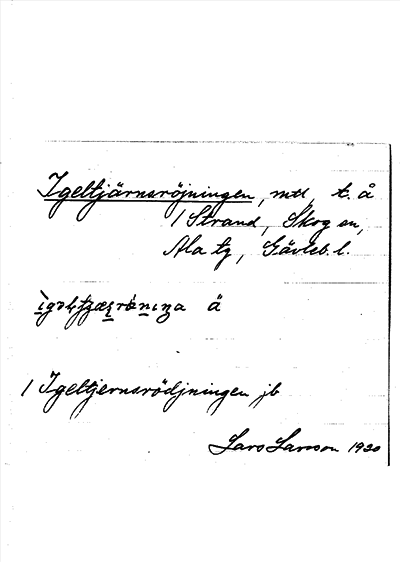 Igeltjärnsröjningen, mtl, t. å
1 Strand, Skog sn,
Ala tg, Gävleb. l.
å
1 Igeltjernsrödjningen jb
Lars Larsson 1920